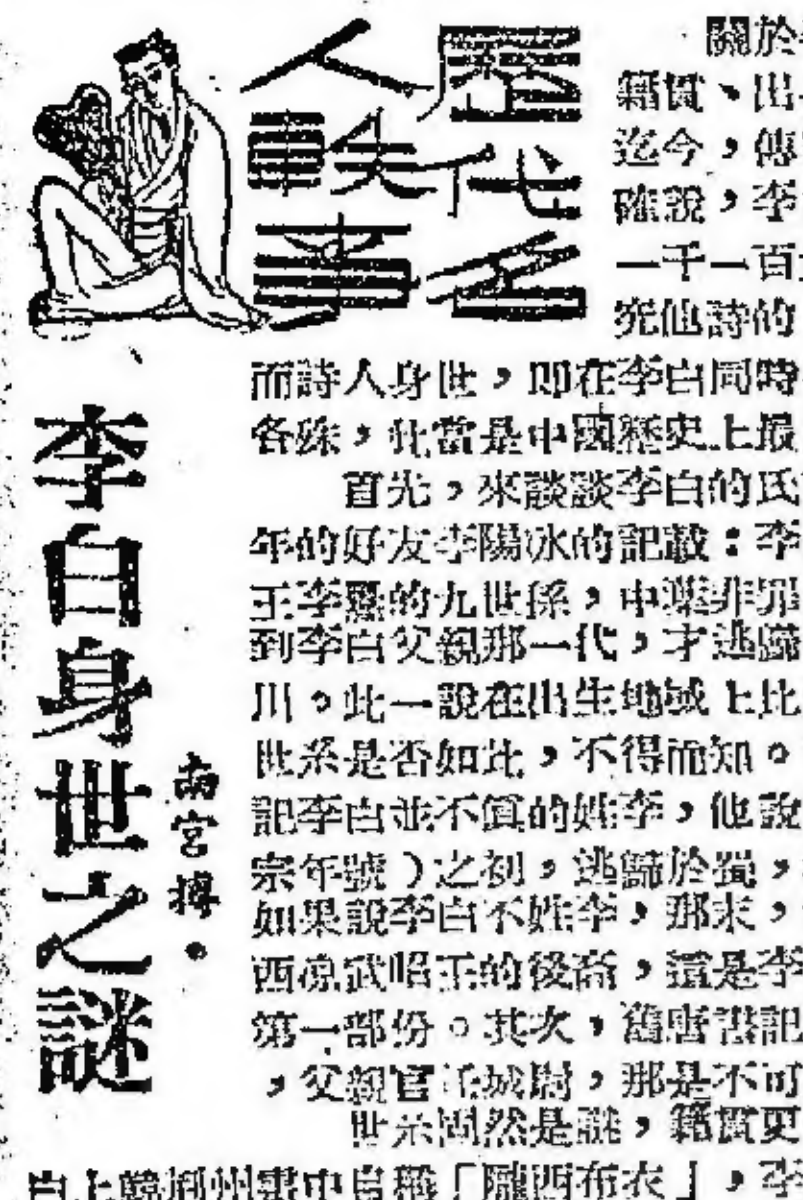 歷代名
人軼事
李白身世之謎
南宮搏。
關於
籍貫、出
迄今,傳
確說,李
一千一百
究他詩的
而詩人身世,即在李白同時
各殊,此當是中國歷史上最
首先,來談談李白的氏
年的好友李陽冰的記載:李
王李暠的九世孫,中葉非罪
到李白父親那一代,才逃歸
川。此一說在出生地域上比
世系是否如此,不得而知。
記李白並不真的姓李,他說
宗年號)之初,逃歸於蜀,
如果說李白不姓李,那末,
西涼武昭王的後裔,還是李
第一部份。其次,舊唐書記
,父親官任城尉,那是不可
世系固然是謎,籍貫更
白上韓荊州書中自稱「隴西布衣」,李